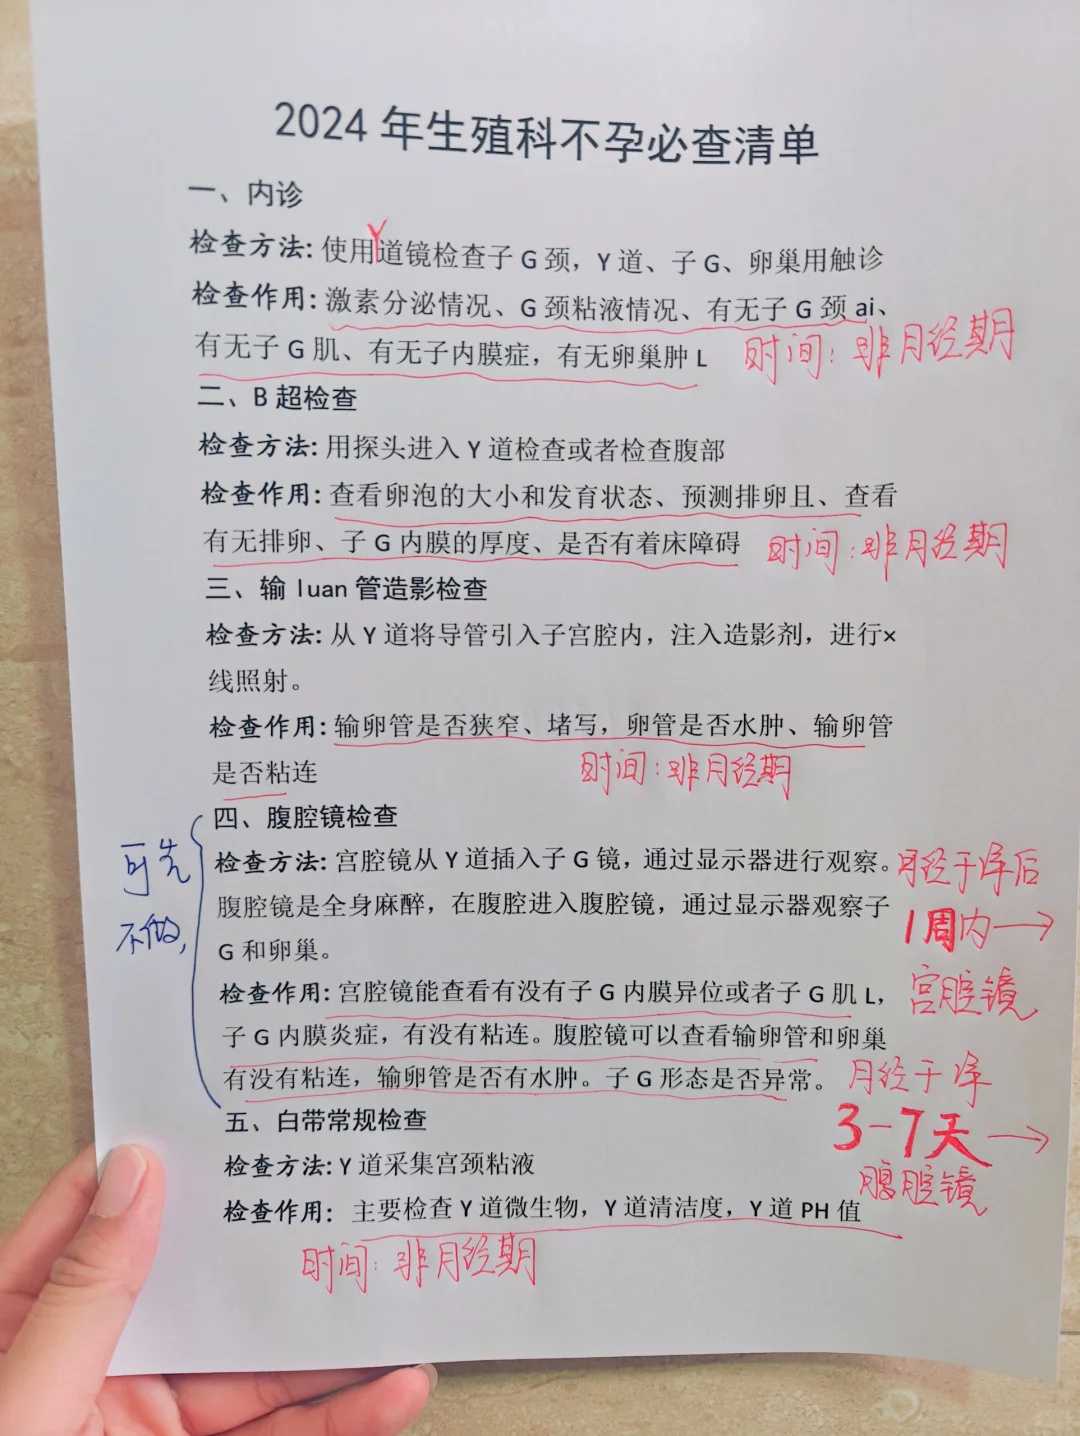 2024 年生殖科不孕必查清单
一、内诊
Y
检查方法: 使用道镜检查子 G 颈，Y 道、子 G、卵巢用触诊
检查作用: 激素分泌情况、G 颈粘液情况、有无子 G 颈 ai、
有无子 G 肌、有无子内膜症，有无卵巢肿 L
时间：非月经期
二、B 超检查
检查方法: 用探头进入 Y 道检查或者检查腹部
检查作用: 查看卵泡的大小和发育状态、预测排卵且、查看
有无排卵、子 G 内膜的厚度、是否有着床障碍
时间：非月经期
三、输 luan 管造影检查
检查方法: 从 Y 道将导管引入子宫腔内，注入造影剂，进行×
线照射。
检查作用: 输卵管是否狭窄、堵写，卵管是否水肿、输卵管
是否粘连
时间：非月经期
四、腹腔镜检查
可先
不做,
检查方法: 宫腔镜从 Y 道插入子 G 镜，通过显示器进行观察。
腹腔镜是全身麻醉，在腹腔进入腹腔镜，通过显示器观察子
G 和卵巢。
月经干净后
1周内→
宫腔镜
检查作用: 宫腔镜能查看有没有子 G 内膜异位或者子 G 肌 L，
子 G 内膜炎症，有没有粘连。腹腔镜可以查看输卵管和卵巢
有没有粘连，输卵管是否有水肿。子 G 形态是否异常。
月经干净
3-7天→
腹腔镜
五、白带常规检查
检查方法: Y 道采集宫颈粘液
检查作用: 主要检查 Y 道微生物，Y 道清洁度，Y 道 PH 值
时间：非月经期